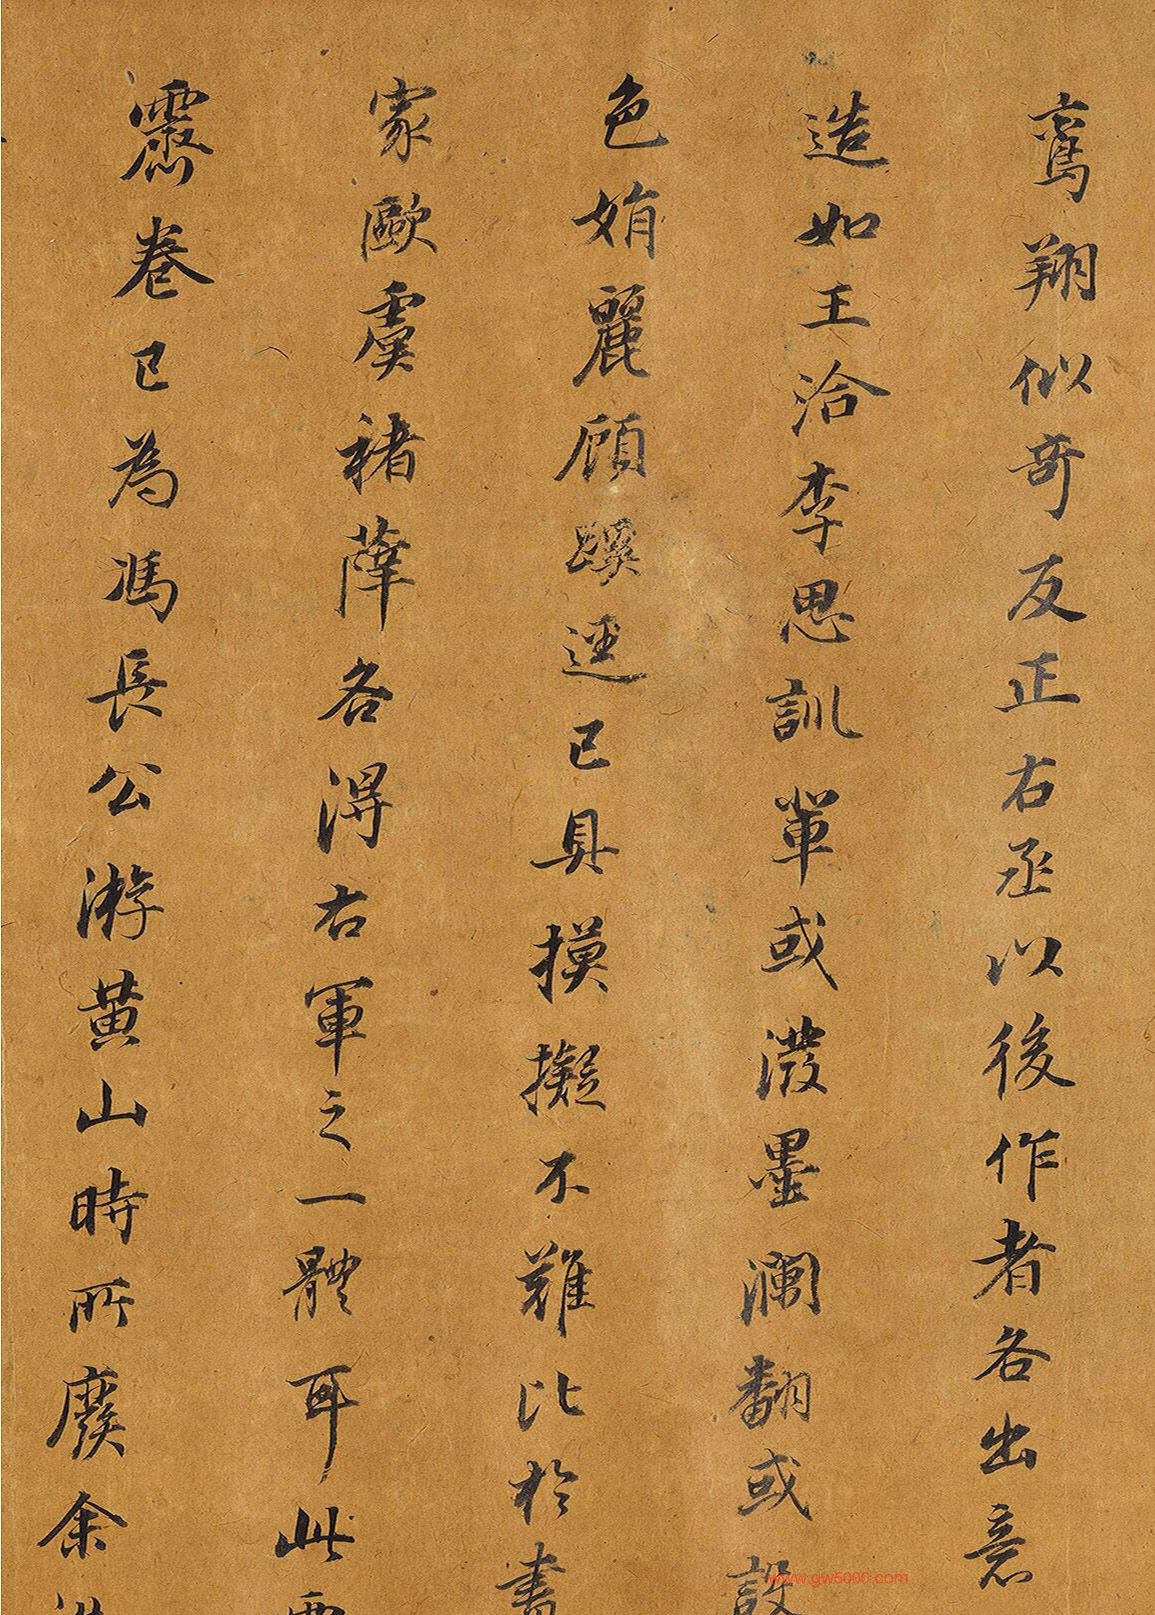 鸞翔似奇反正右丞以後作者各出意
造如王洽李思訓輩或潑墨瀾翻或設
色娟麗顧蹊逕已具摸擬不難比於書
家歐虞褚薛各得右軍之一體耳此雪
霽卷已為馮長公游黃山時所廢余
www.gw5000.com